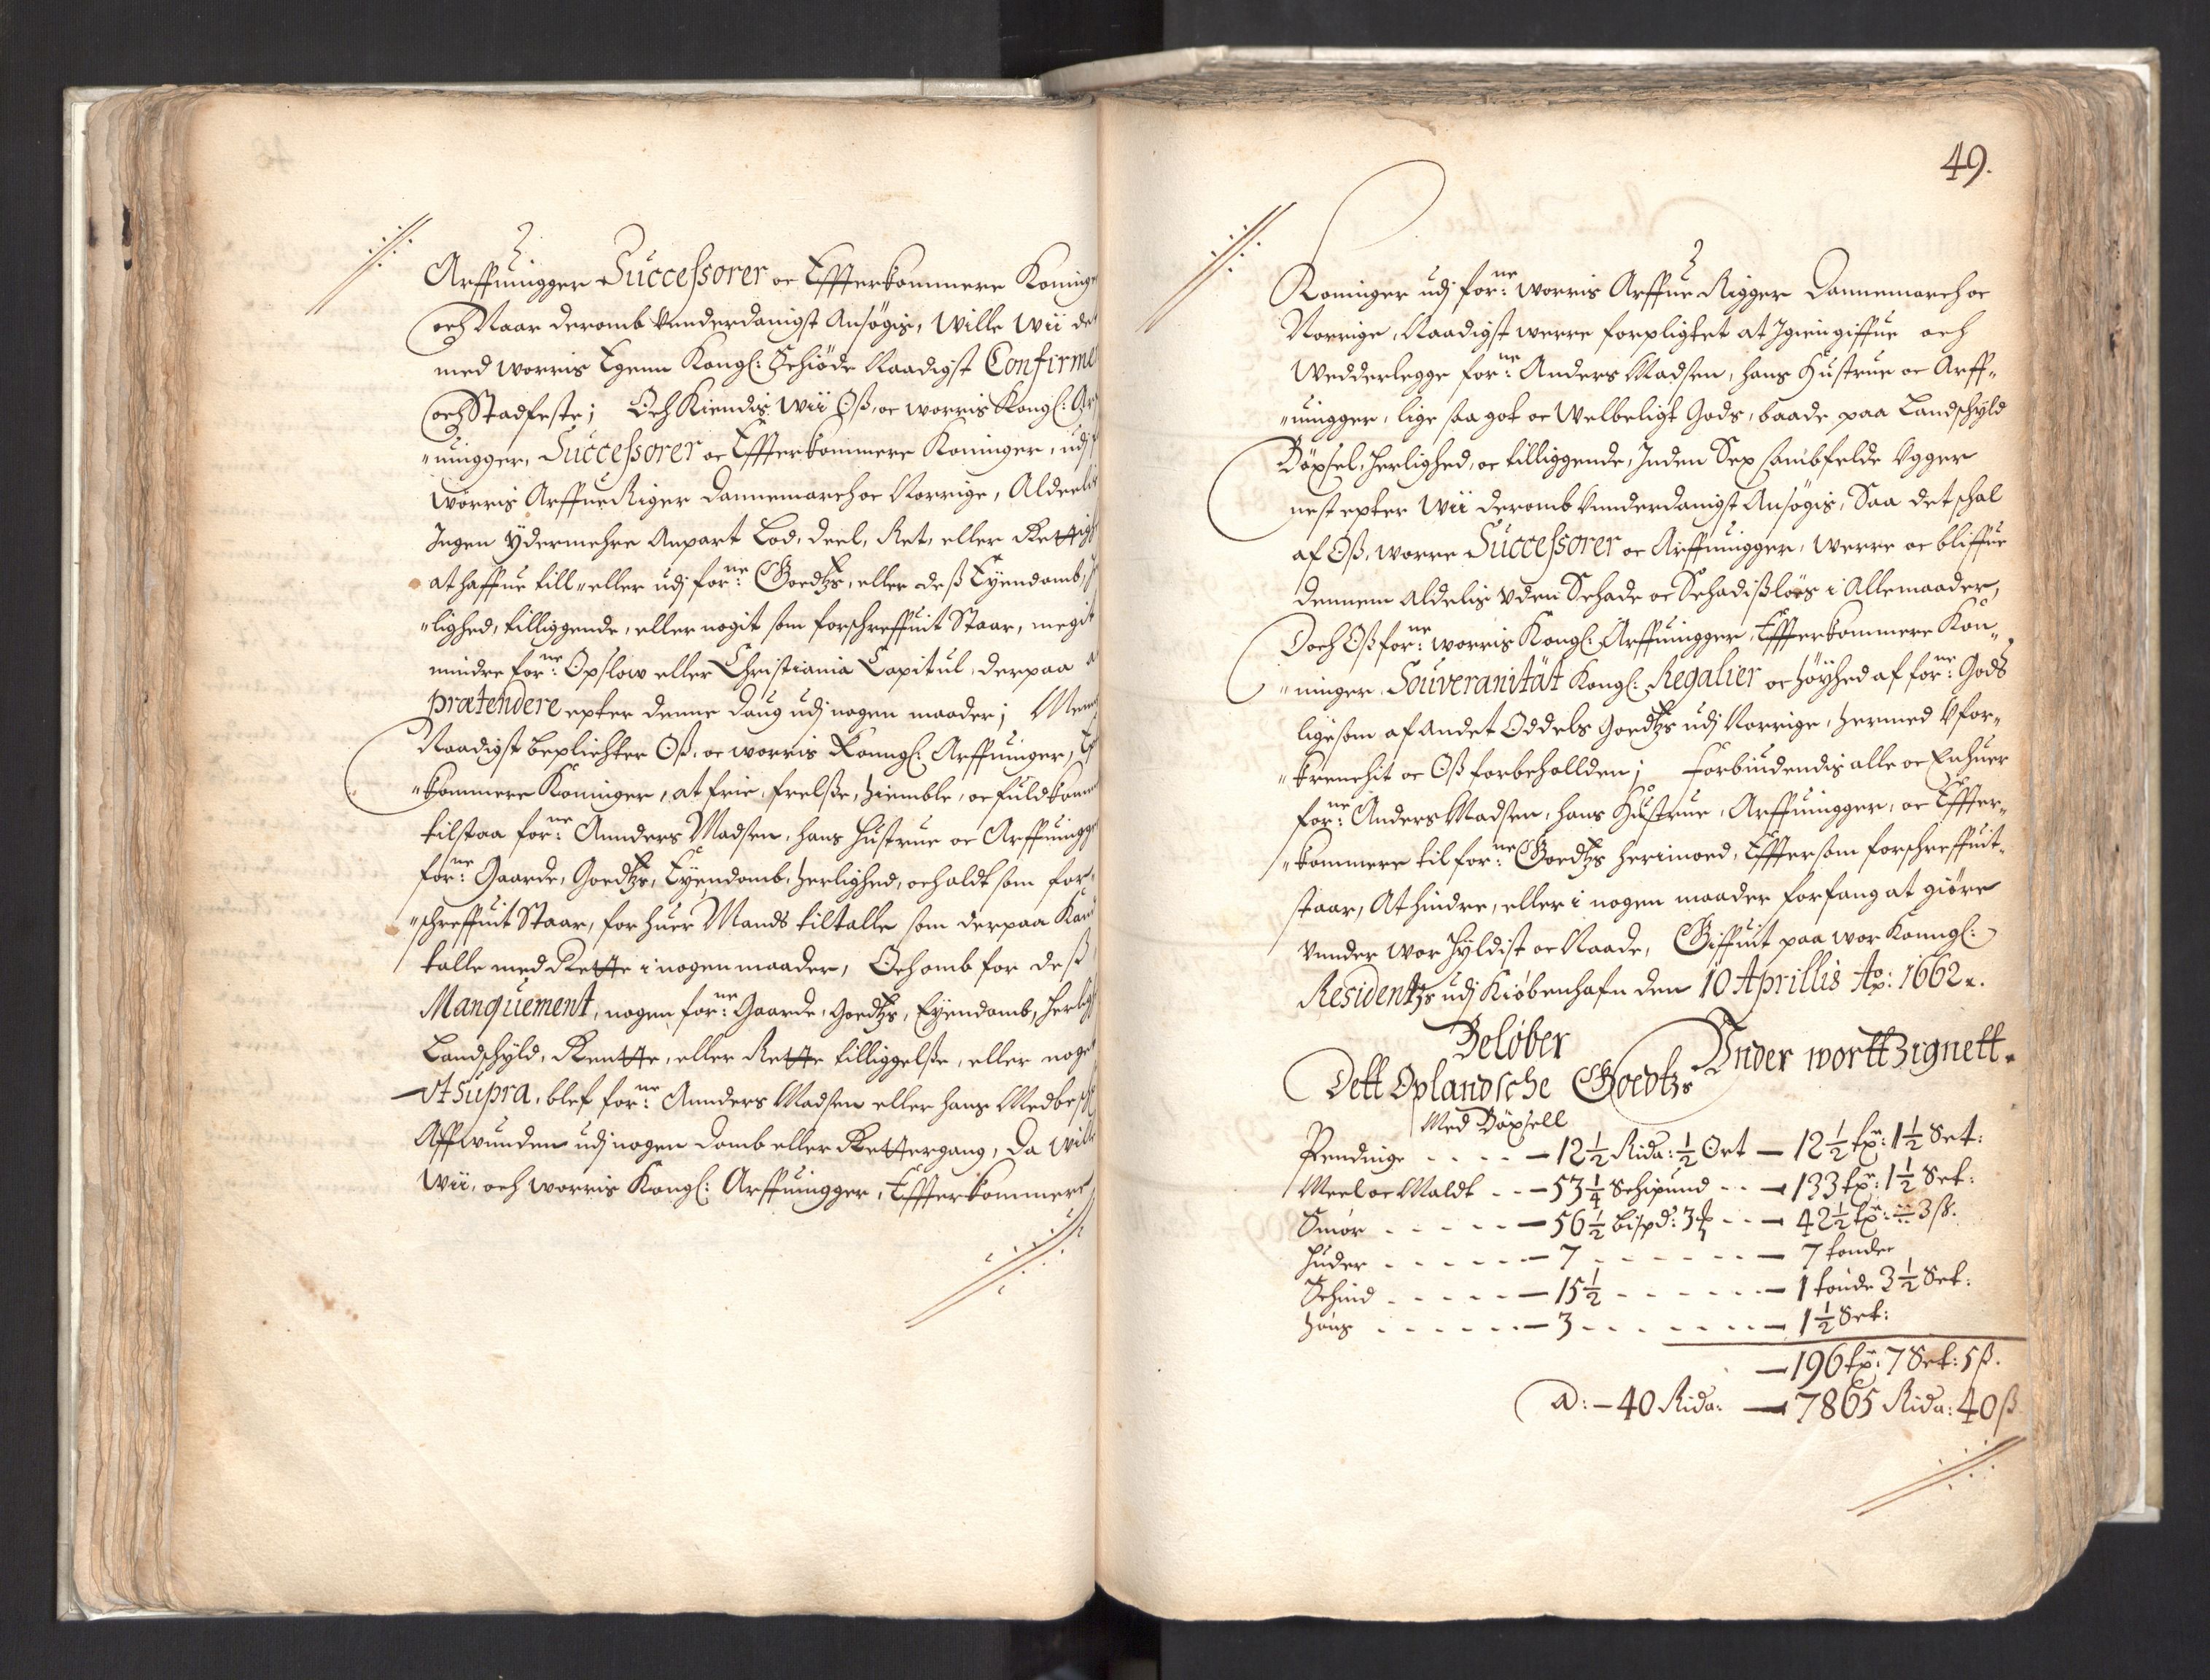 Arffuingger Successorer oc Effterkommere Koning
och Naar deromb Vnnderdanigst Ansøgis, Wille Wii det
med Worris Egenn Kongl: Schiøde Naadigst Confirme
och Stadfeste; Och Kiendis Wii Oß, oc Worris Kongl: Arf
"uingger, Successorer oc Effterkommere Koninger, udj
Worris Arffue Riger Dannemarch oc Norrige, Aldeelis
Ingen Ydermehre Anpart Lod, deel, Ret, eller Rettigh
at haffue till "eller udj for:ne Goedtzs, eller deß Eyendomb,
"lighed, tilliggende, eller nogit som forschreffuit Staar, megit
mindre for:ne Opslow eller Christiania Capitul, derpaa a
prætendere epter denne daug udj nogen maader; Menn
Naadigst bepligter Oß, oc worris Konngl: Arffuinger, Ef
"kommere Koninger, at frie, frelsse, hiemble, oc fuldkomm
tilstaa for:ne Annders Madsen, hans Hustrue oc Arffuingge
for:ne Gaarde, Goedtzs, Eyendomb, herlighed, och aldt som for"
"schreffuit Staar, for huer Mands tiltalle som derpaa Kand
talle med Rette i nogen maader, Och omb for deß
Manquement, nogen for:ne Gaarde, Goedtzs, Eyendomb, herligh
Landschyld, Rentte, eller Rette tilliggelße, eller noget
Vt Supra, blef for:ne Annders Madsen eller hans Medbesch
Affwunden udj nogen domb eller Rettergang, da Wille
Wii, och worris Kongl: Arffuingger, Effterkommere
49.
Koninger udj for:ne Worris Arffue Rigger Dannemarch oc
Norrige, Naadigst werre forpligtet at Igiengiffue och
Wedderlegge for:ne Anders Madsen, hans Hustrue oc Arff"
"uingger, lige saa got oc Welbeligt Gods, baade paa Landschyld
Böxsel, herlighed, oc tilliggende, Inden Sex sambfelde Vgger
nest epter Wii deromb Vnnderdanigst Ansøgis, Saa det schal
af Oß, worre Successorer oc Arffuingger, Werre oc bliffue
dennem aldelis Vden Schade oc Schadißløes i Allemaader,
Doch Oß for:ne worris Kongl: Arffuingger, Effterkommere Kon"
"ninger, Souveranität Kongl: Regalier oc høyhed af for:ne Gods
ligesom af andet Oddels Goedtzs udj Norrige, hermed Vfor"
"krenchit oc Oß forbehollden; Forbiudendis alle oc Enhuer
for:ne Anders Madsen, hans Hustrue, Arffuingger, oc Effter"
"kommere til for:ne Goedtzs herimoed, Effter som forschreffuit"
staar, At hindre, eller i nogen maader forfang at giøre
Vnnder Wor hyldist oc Naade, Giffuit paa wor Konngl:
Residentzs udj Kiøbenhafn den 10 Aprillis Ao: 1662.
Vnder wortt Zignett.
Beløber
Dett Oplandsche Goedtzs
Med Böxsell
Pendinge - - - - 12 1/2 Rida: 1/2 Ort - 12 1/2 tr: 1 1/2 Set:
Meel oc Maldt - - 53 1/4 Schipund - - 133 tr: 1 1/2 Set:
Smør - - - - - 56 1/2 bispd: 3 ℔ - - 42 1/2 tr: ÷ 3 ß:
Huder - - - - - 7 - - - - - - 7 tonder
Schind - - - - - 15 1/2 - - - - - - 1 tonde 3 1/2 Set:
høns - - - - - - 3 - - - - - - - 1 1/2 Set:
196 tr: 7 Set: 5 ß.
A: - 40 Rida: - 7865 Rida: 40 ß